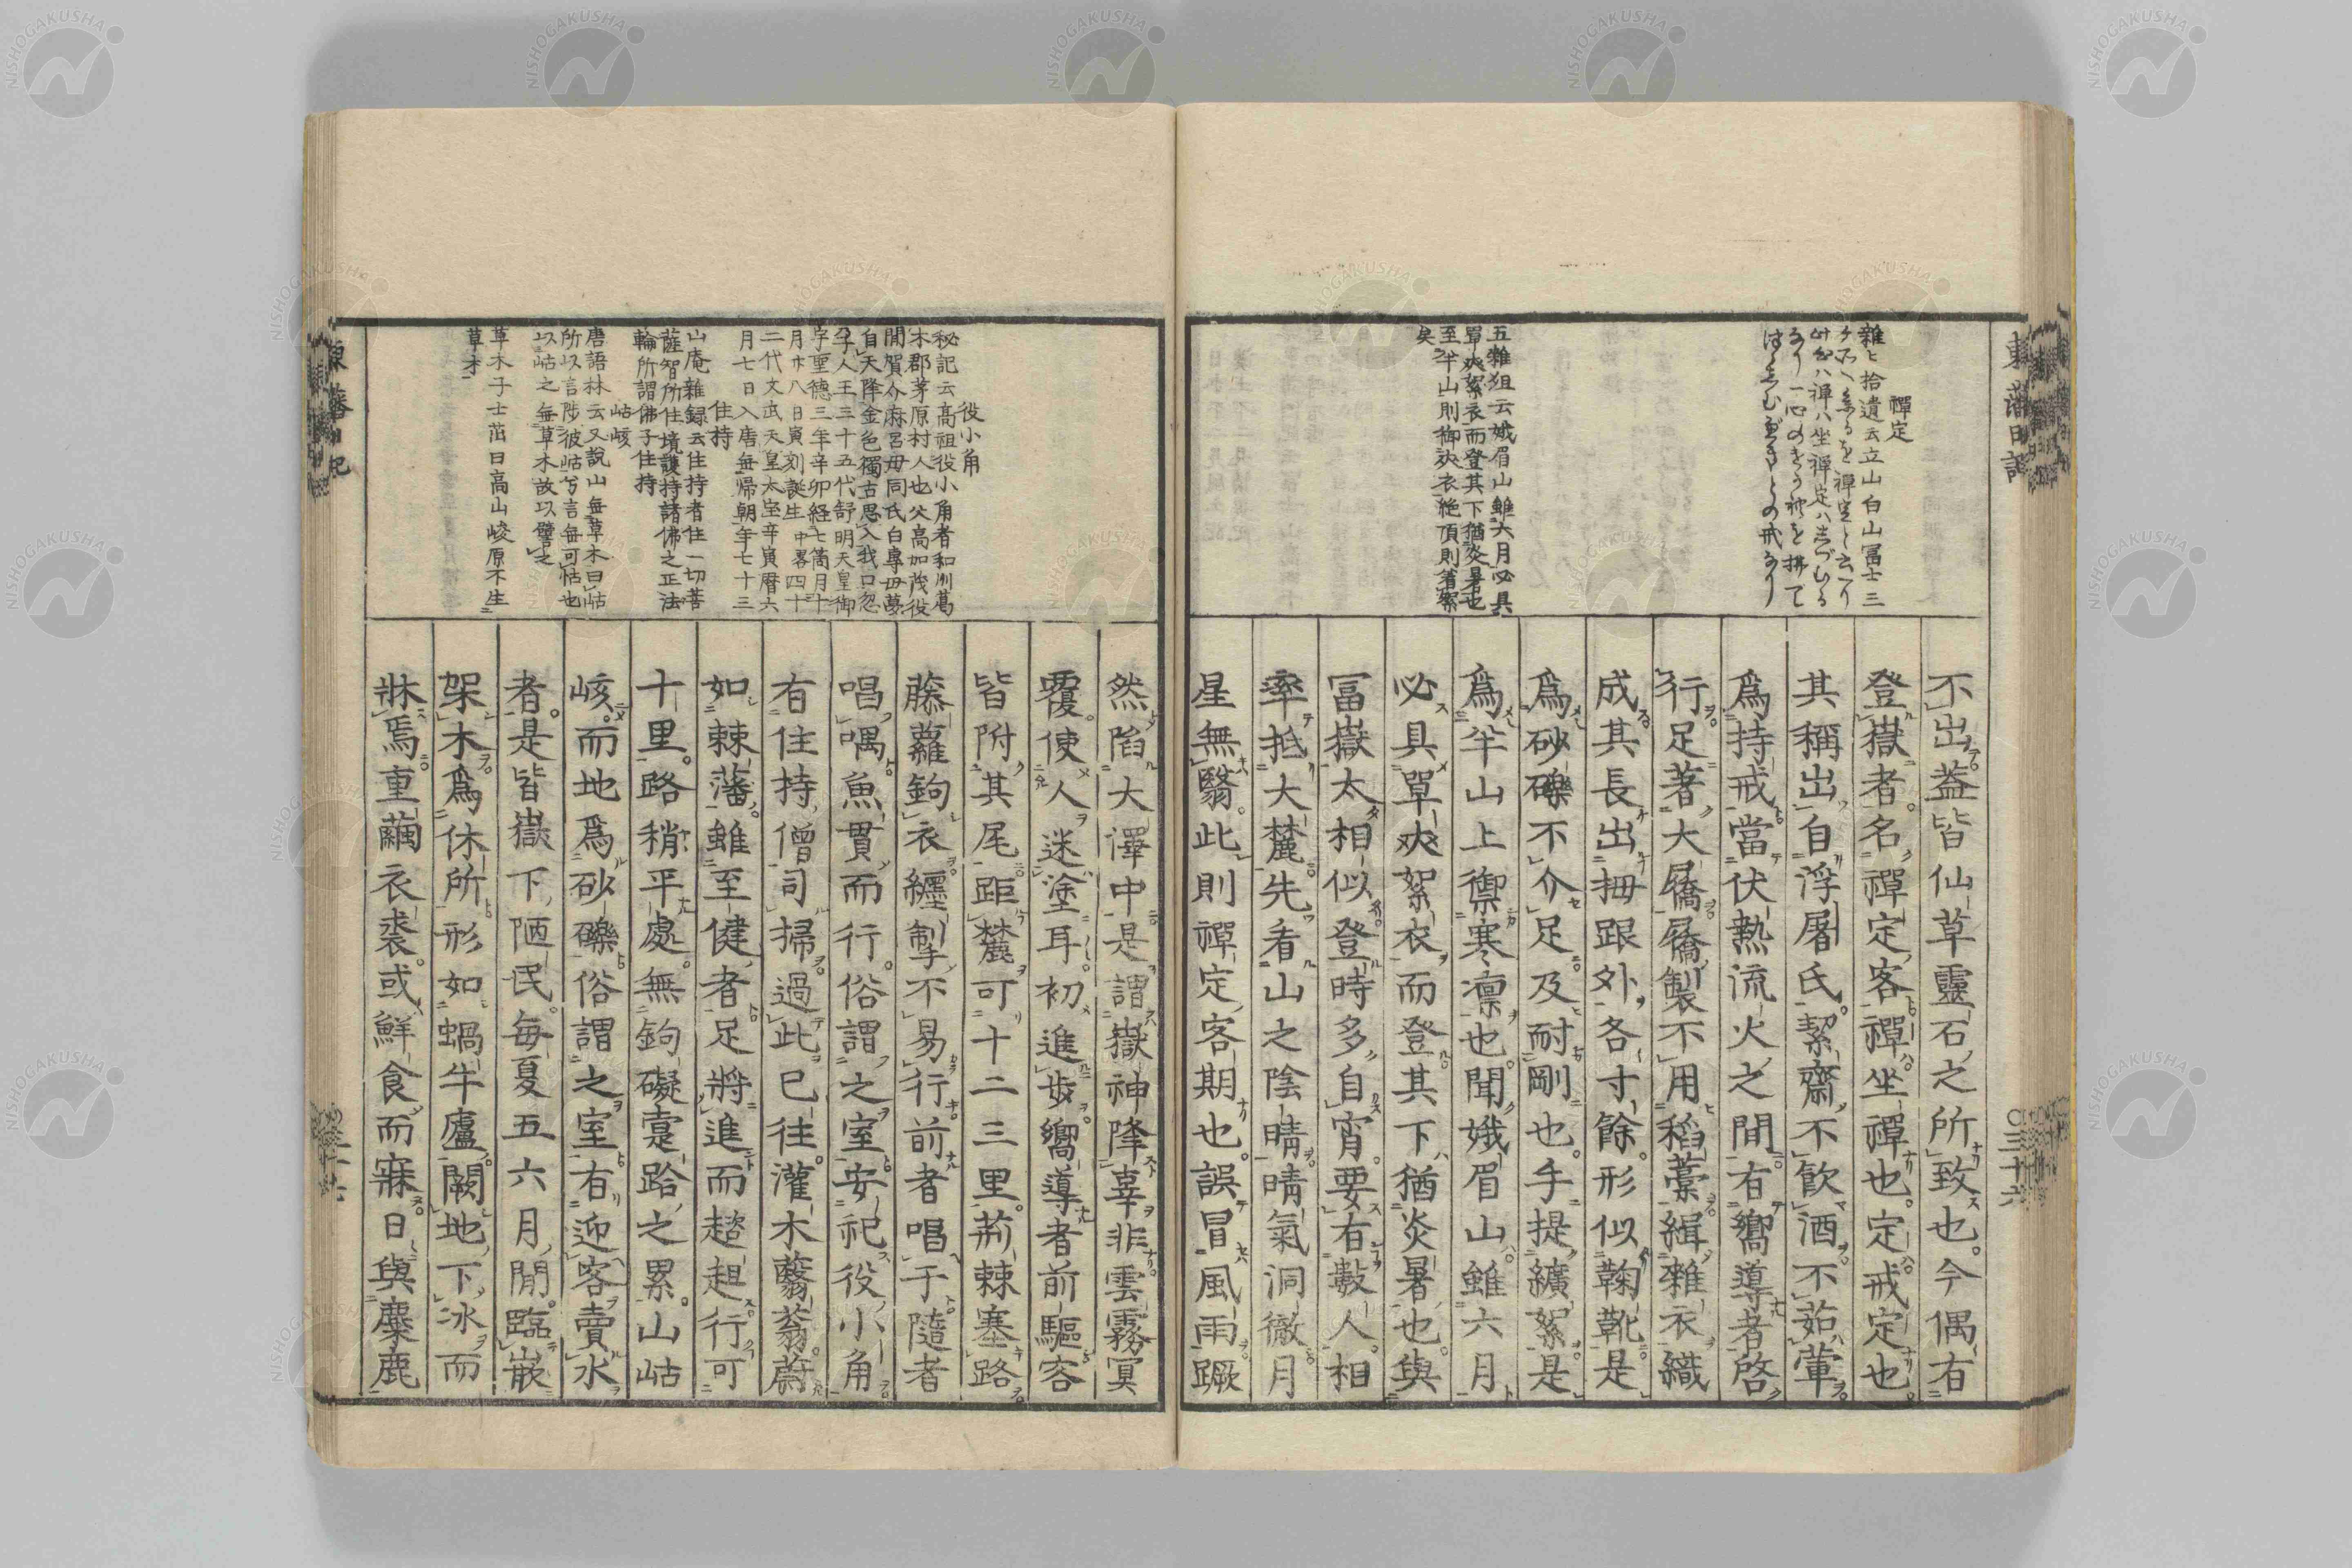 東藩日記
三十六
禪定
雜ヒ拾遺云立山白山冨士三
五雜爼云娥眉山雖六月必具
單夾絮衣而登其下猶炎暑也
至半山則御夾衣絶頂則著絮
矣
不出蓋皆仙草靈石之所致也今偶有
登嶽者名禪定客禪坐禪也定戒定也
其稱出自浮屠氏絜齋不飮酒不茹葷
爲持戒當伏熱流火之間有嚮導者啓
行足著大屩屩製不用稻藁緝雜衣織
成其長出拇跟外各寸餘形似鞠靴是
爲砂礫不介足及耐剛也手提纊絮是
爲半山上禦寒凛也聞娥眉山雖六月
必具單夾絮衣而登其下猶炎暑也與
冨嶽太相似登時多自宵要有數人相
率抵大麓先看山之陰晴晴氣洞徹月
星無翳此則禪定客期也誤冒風雨蹶
役小角
秘記云高祖役小角者和州葛
木郡茅原村人也父高加茂役
間賀介麻呂母同氏白專母夢
自天降金色獨古思入我口忽
孕人王三十五代舒明天皇御
宇聖德三年辛卯経七箇月十
月廿八日寅刻誕生中畧四十
二代文武天皇太宝辛寅曆六
月七日入唐無帰朝年七十三
住持
山庵雜録云住持者住一切菩
薩智所住境護持諸佛之正法
輪所謂佛子住持
岵峐
唐語林云又說山無草木曰岵
所以言陟彼岵兮言無可怙也
以岵之無草木故以譬之
草木子士茁曰高山峻原不生
草木
然陷大澤中是謂嶽神降辜非雲霧冥
覆使人迷塗耳初進歩嚮導者前驅客
皆附其尾距麓可十二三里荊棘塞路
藤蘿鉤衣纒掣不易行前者唱于隨者
唱喁魚貫而行俗謂之室安祀役小角
有住持僧司掃過此已往灌木蘙蓊蔚
如棘藩雖至健者足將進而趦趄行可
十里路稍平處無鉤礙䠱跲之累山岵
峐而地爲砂礫俗謂之室有迎客賣水
者是皆嶽下陋民每夏五六月間臨嵌
架木爲休所形如蝸牛廬闕地下冰而
牀焉重繭衣裘或鮮食而寐日與麋鹿